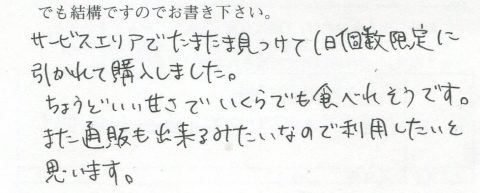 でも結構ですのでお書き下さい。
サービスエリアでたまたま見つけて1日個数限定に
引かれて購入しました。
ちょうどいい甘さでいくらでも食べれそうです。
また通販も出来るみたいなので利用したいと
思います。